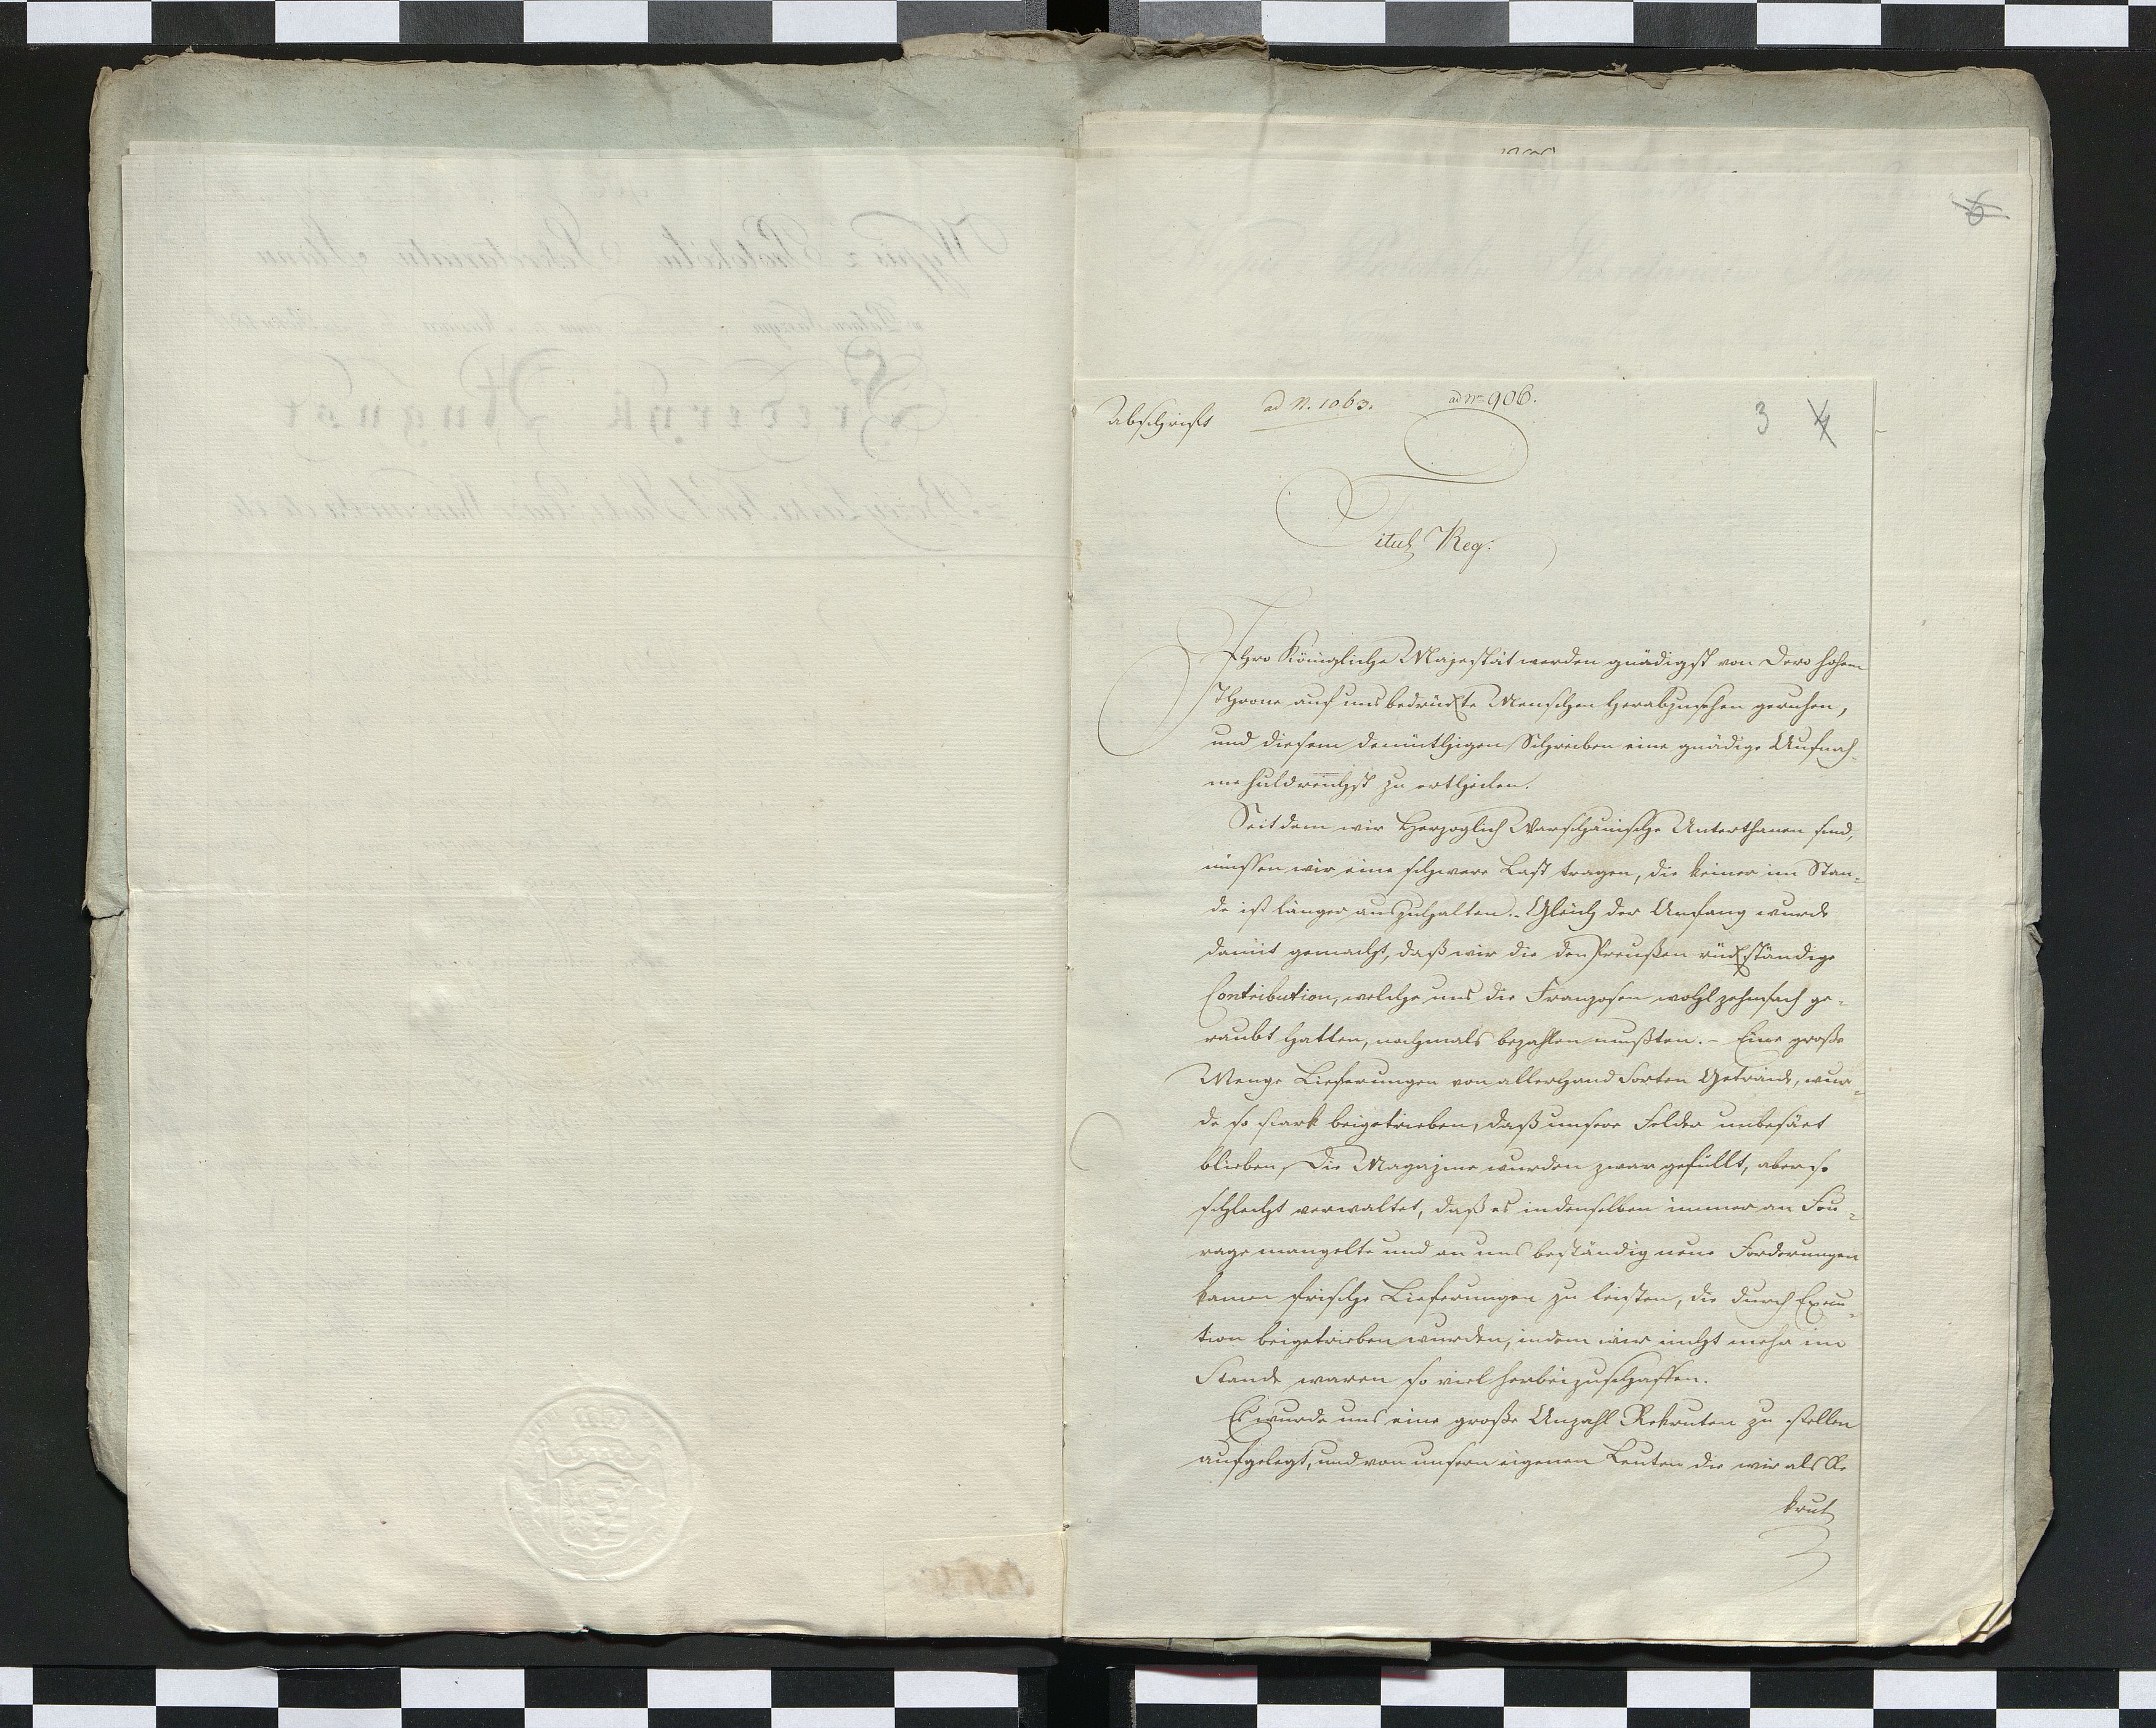 6
Abschrift ad N. 1063. ad nr 906. 3 4
Titul Reg:
Ihro Königliche Majestät werden gnädigst von Dero hohem
Throne auf uns bedrückte Menschen herabzusehen geruhen,
und diesem demüthigen Schreiben eine gnädige Aufnah-
me huldreichst zu ertheilen.
Seitdem wir Herzoglich Warschauische Unterthanen sind,
müssen wir eine schwere Last tragen, die keiner im Stan-
de ist länger auszuhalten. - Gleich der Anfang wurde
damit gemacht, daß wir die den Preußen rückständige
Contribution, welche uns die Franzosen wohl zehnfach ge-
raubt hatten, nochmals bezahlen mußten. - Eine große
Menge Lieferungen von allerhand Sorten Getraide, wur-
de so stark beigetrieben, daß unsere Felder unbesäet
blieben, Die Magazine wurden zwar gefüllt, aber so
schlecht verwaltet, daß es in denselben immer an Fou-
rage mangelte und an uns beständig neue Forderungen
kamen frische Lieferungen zu leisten, die durch Execu-
tion beigetrieben wurden, indem wir nicht mehr im
Stande waren so viel herbeizuschaffen.
Es wurde uns eine große Anzahl Rekruten zu stellen
aufgelegt, und von unsern eigenen Leuten die wir als Re
krut
Wypis z Protokułu Sekretariatu Stanu
Frederyk August
z Bożey Łaski Król Saski, Xiąże Warszawski etc etc